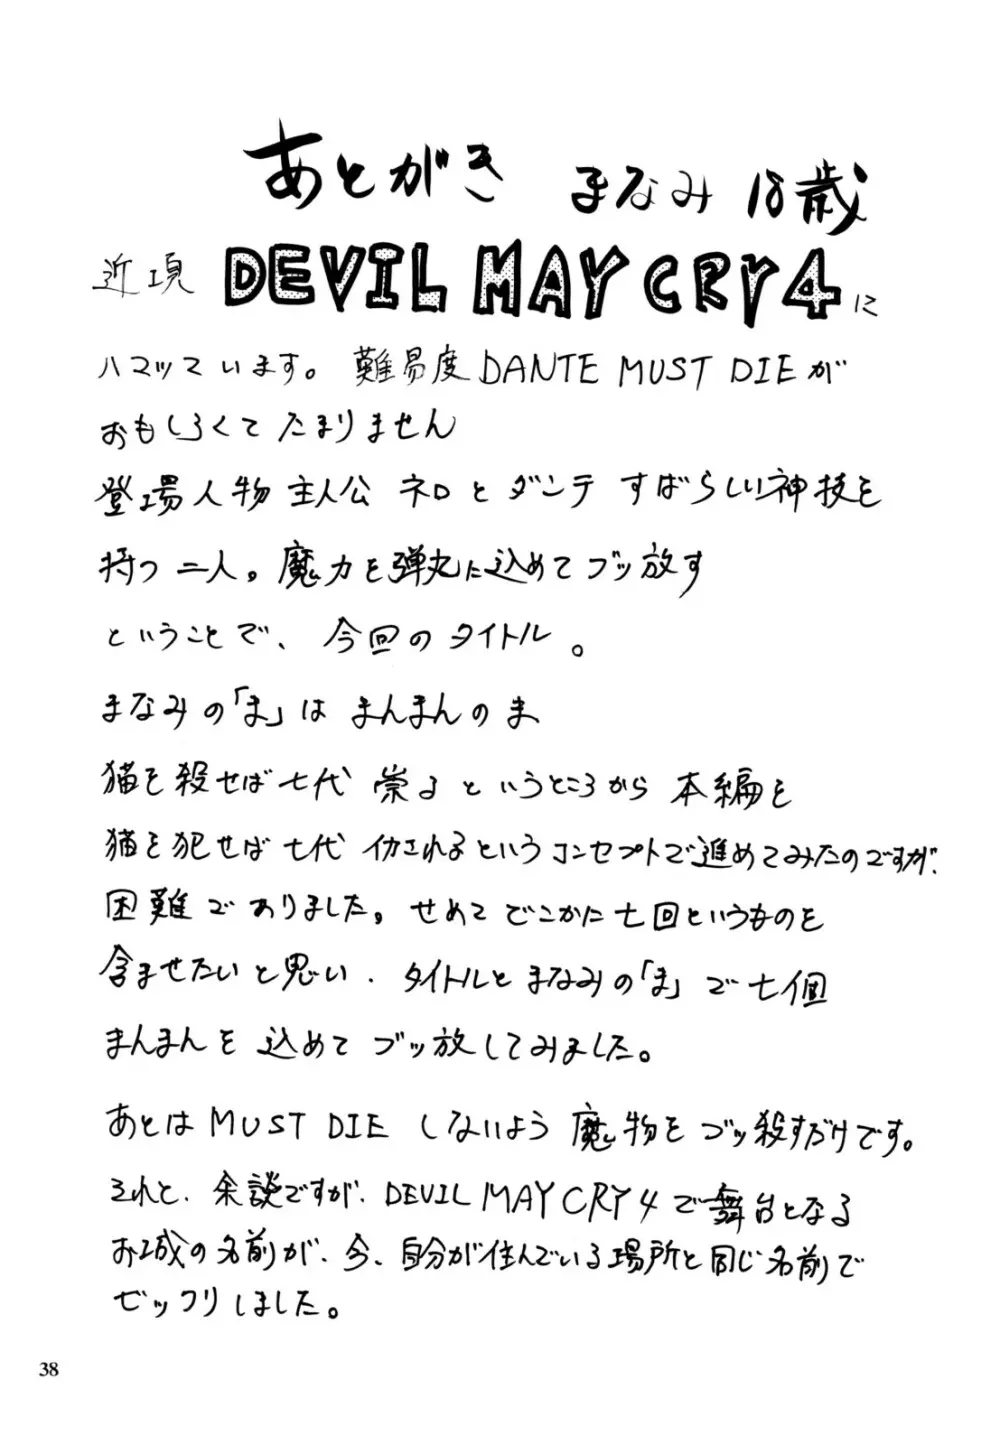 あとがき まなみ 18歳
近頃 DEVIL MAY CRY 4に
ハマッています。難易度DANTE MUST DIEが
おもしろくてたまりません
登場人物主人公 ネロとダンテ すばらしい神技を
持つ二人。魔力を弾丸に込めてブッ放す
ということで、今回のタイトル。
まなみの「ま」はまんまんのま
猫を殺せば七代祟るというところから本編を
猫を犯せば七代イカされるというコンセプトで進めてみたのですが、
困難でありました。せめてどこかに七回というものを
含ませたいと思い、タイトルとまなみの「ま」で七個
まんまんを込めてブッ放してみました。
あとはMUST DIEしないよう魔物をブッ殺すだけです。
それと、余談ですが、DEVIL MAY CRY 4で舞台となる
お城の名前が、今、自分が住んでいる場所と同じ名前で
ビックリしました。
38